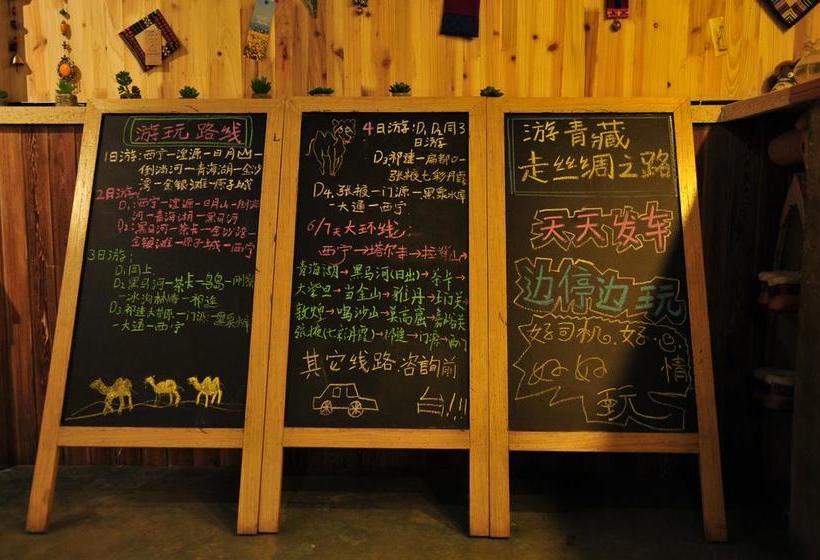 游玩路线
1日游:西宁—湟源—日月山—
倒淌河—青海湖—金沙
湾—金银滩—原子城
2日游:
D₁:西宁—湟源—日月山—倒淌
河—青海湖—黑马河
D₂:黑马河—茶卡—金沙湾—
金银滩—原子城—西宁
3日游:
D₁同上
D₂黑马河—茶卡—鸟岛—刚察
—冰沟林海—祁连
D₃祁连大草原—门源—黑泉水库
—大通—西宁
4日游:D₁D₂同3
日游
D₃祁连—扁都口—
张掖七彩丹霞
D₄.张掖—门源—黑泉水库
—大通—西宁
6/7天大环线:
西宁→塔尔寺→拉脊山→
青海湖→黑马河(日出)→茶卡→
大柴旦→当金山→雅丹→玉门关→
敦煌→鸣沙山→莫高窟→嘉峪关
张掖(七彩丹霞)→祁连→门源→西宁
其它线路.咨询前
台!!!
游青藏
走丝绸之路
天天发车
边停边玩
好司机.好
情
好好
玩